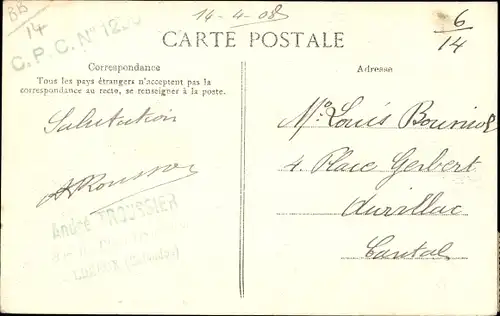 BB
14
C.P.C. Nº
14-4-08
6/14
CARTE POSTALE
Correspondance
Tous les pays étrangers n'acceptent pas la
correspondance au recto, se renseigner à la poste.
Salutation
André TROUSSIER
Adresse
Louis
4. Place Gerbert
Aurillac
Cantal